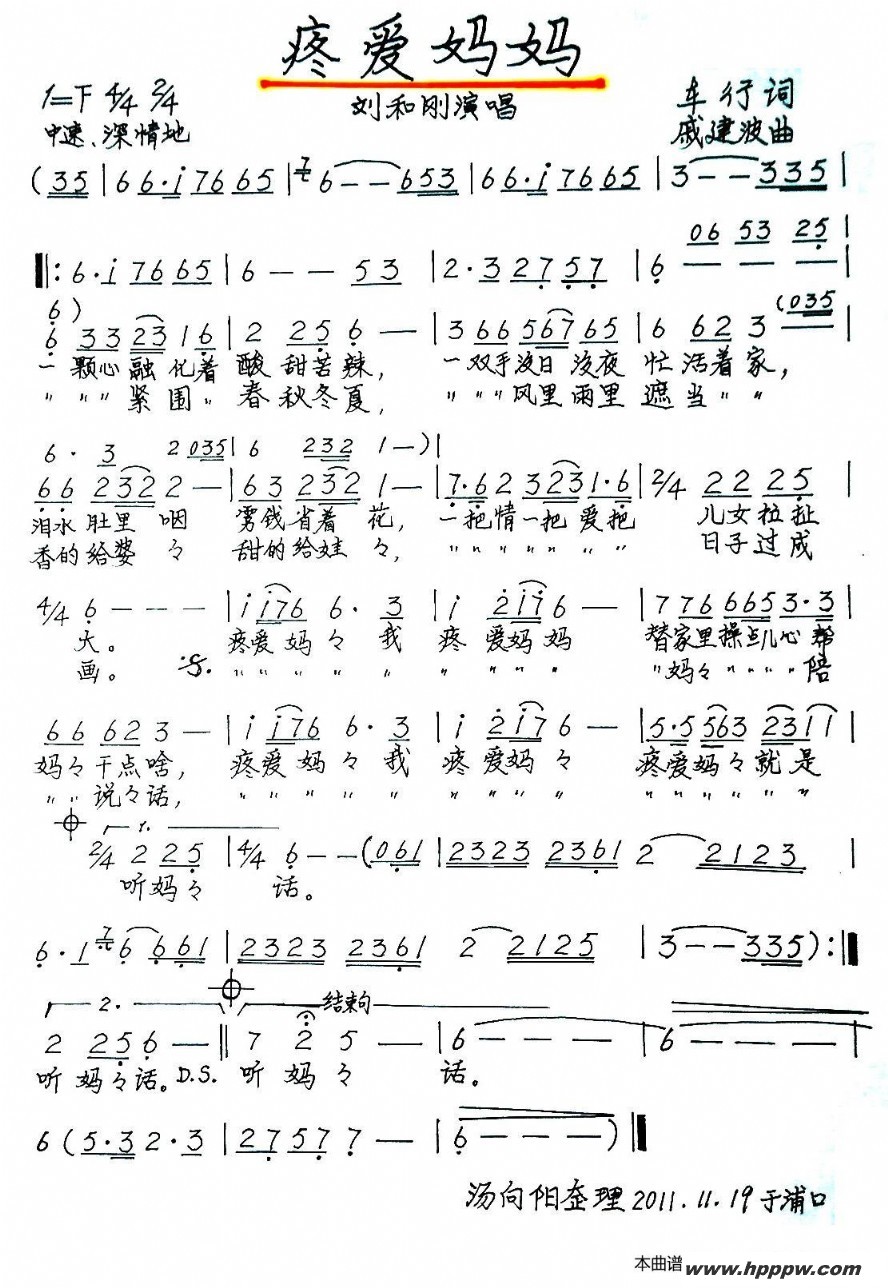 疼爱妈妈
1=F 4/4 2/4
刘和刚演唱
车行词
中速、深情地
戚建波曲
(35 | 66·i7665 | 7 6 — — 653 | 66·i7665 | 3 — — 335 |
06 53 25 |
‖: 6·i7665 | 6 — — 53 | 2·32757 | 6 — — —
6 )
6 332316 | 2 256 — | 3 66567 65 | 6 623 (035 |
一颗心融化着酸甜苦辣, 一双手没日没夜忙活着家,
〃〃〃紧围〃春秋冬夏, 〃〃〃风里雨里遮当〃〃
6· 3 2035 | 6 232 1 — ) |
66 232 2 — | 63 232 1 — | 7·62 3231·6 | 2/4 22 25 |
泪水肚里咽 雾钱省着花, 一把情一把爱把 儿女拉扯
香的给婆々 甜的给娃々, 〃〃〃〃〃〃 日子过成
4/4 6 — — — | i i76 6· 3 | i 2i76 — | 776 665 3·3 |
大。 疼爱妈々我 疼爱妈妈 替家里操点儿心帮
画。 :S. 〃〃〃〃〃 〃〃〃〃 〃妈々〃〃〃〃陪
66 623 — | i i76 6· 3 | i 2i76 — | 5·5 563 2311 |
妈々干点啥, 疼爱妈々我 疼爱妈々 疼爱妈々就是
〃〃说々话, 〃〃〃〃〃 〃〃〃〃 〃〃〃〃〃〃
1.
2/4 2 25 | 4/4 6 — — (061 | 2323 2361 2 2123 |
听妈々 话。
6·1 7 6 661 | 2323 2361 2 2125 | 3 — — 335) :‖
2. 结束句
2 256 — ‖ 7 2 5 — | 6 — — — | 6 — — — |
听妈々话。D.S. 听妈々 话。
6 (5·32·3 | 27577 — | 6 — — — ) ‖
汤向阳整理2011.11.19于浦口
本曲谱 www.hpppw.com